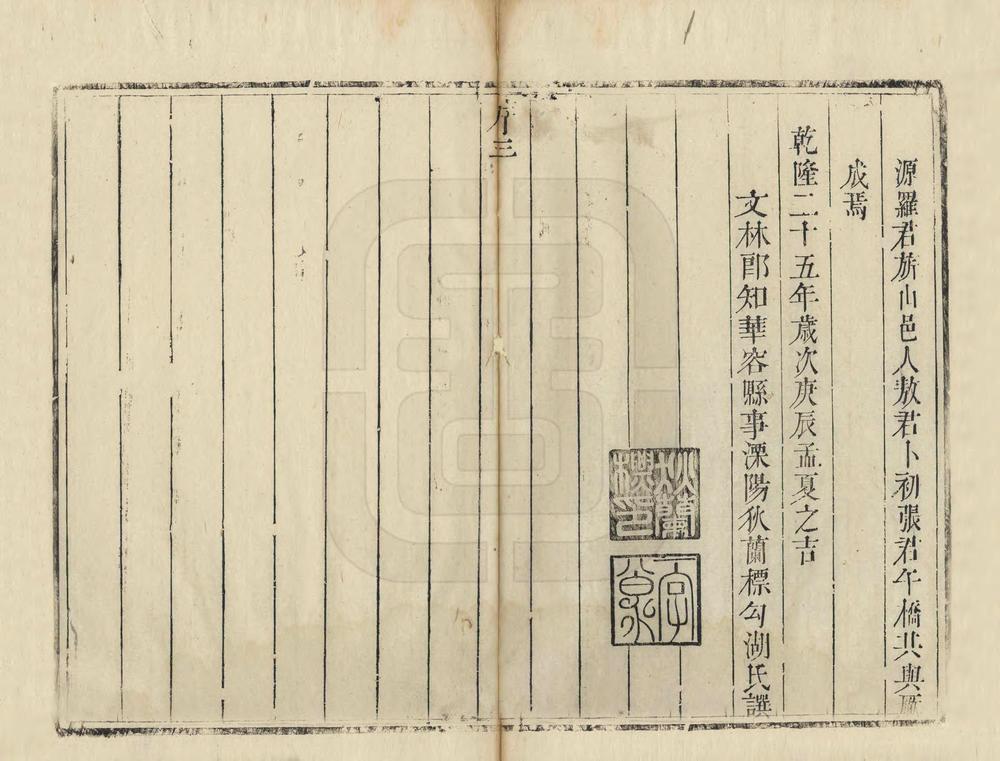 源羅君旂山邑人敖君卜初張君午橋共與厥
成焉
乾隆二十五年歲次庚辰孟夏之吉
文林郎知華容縣事溧陽狄蘭標勾湖氏譔
狄蘭標印
序三